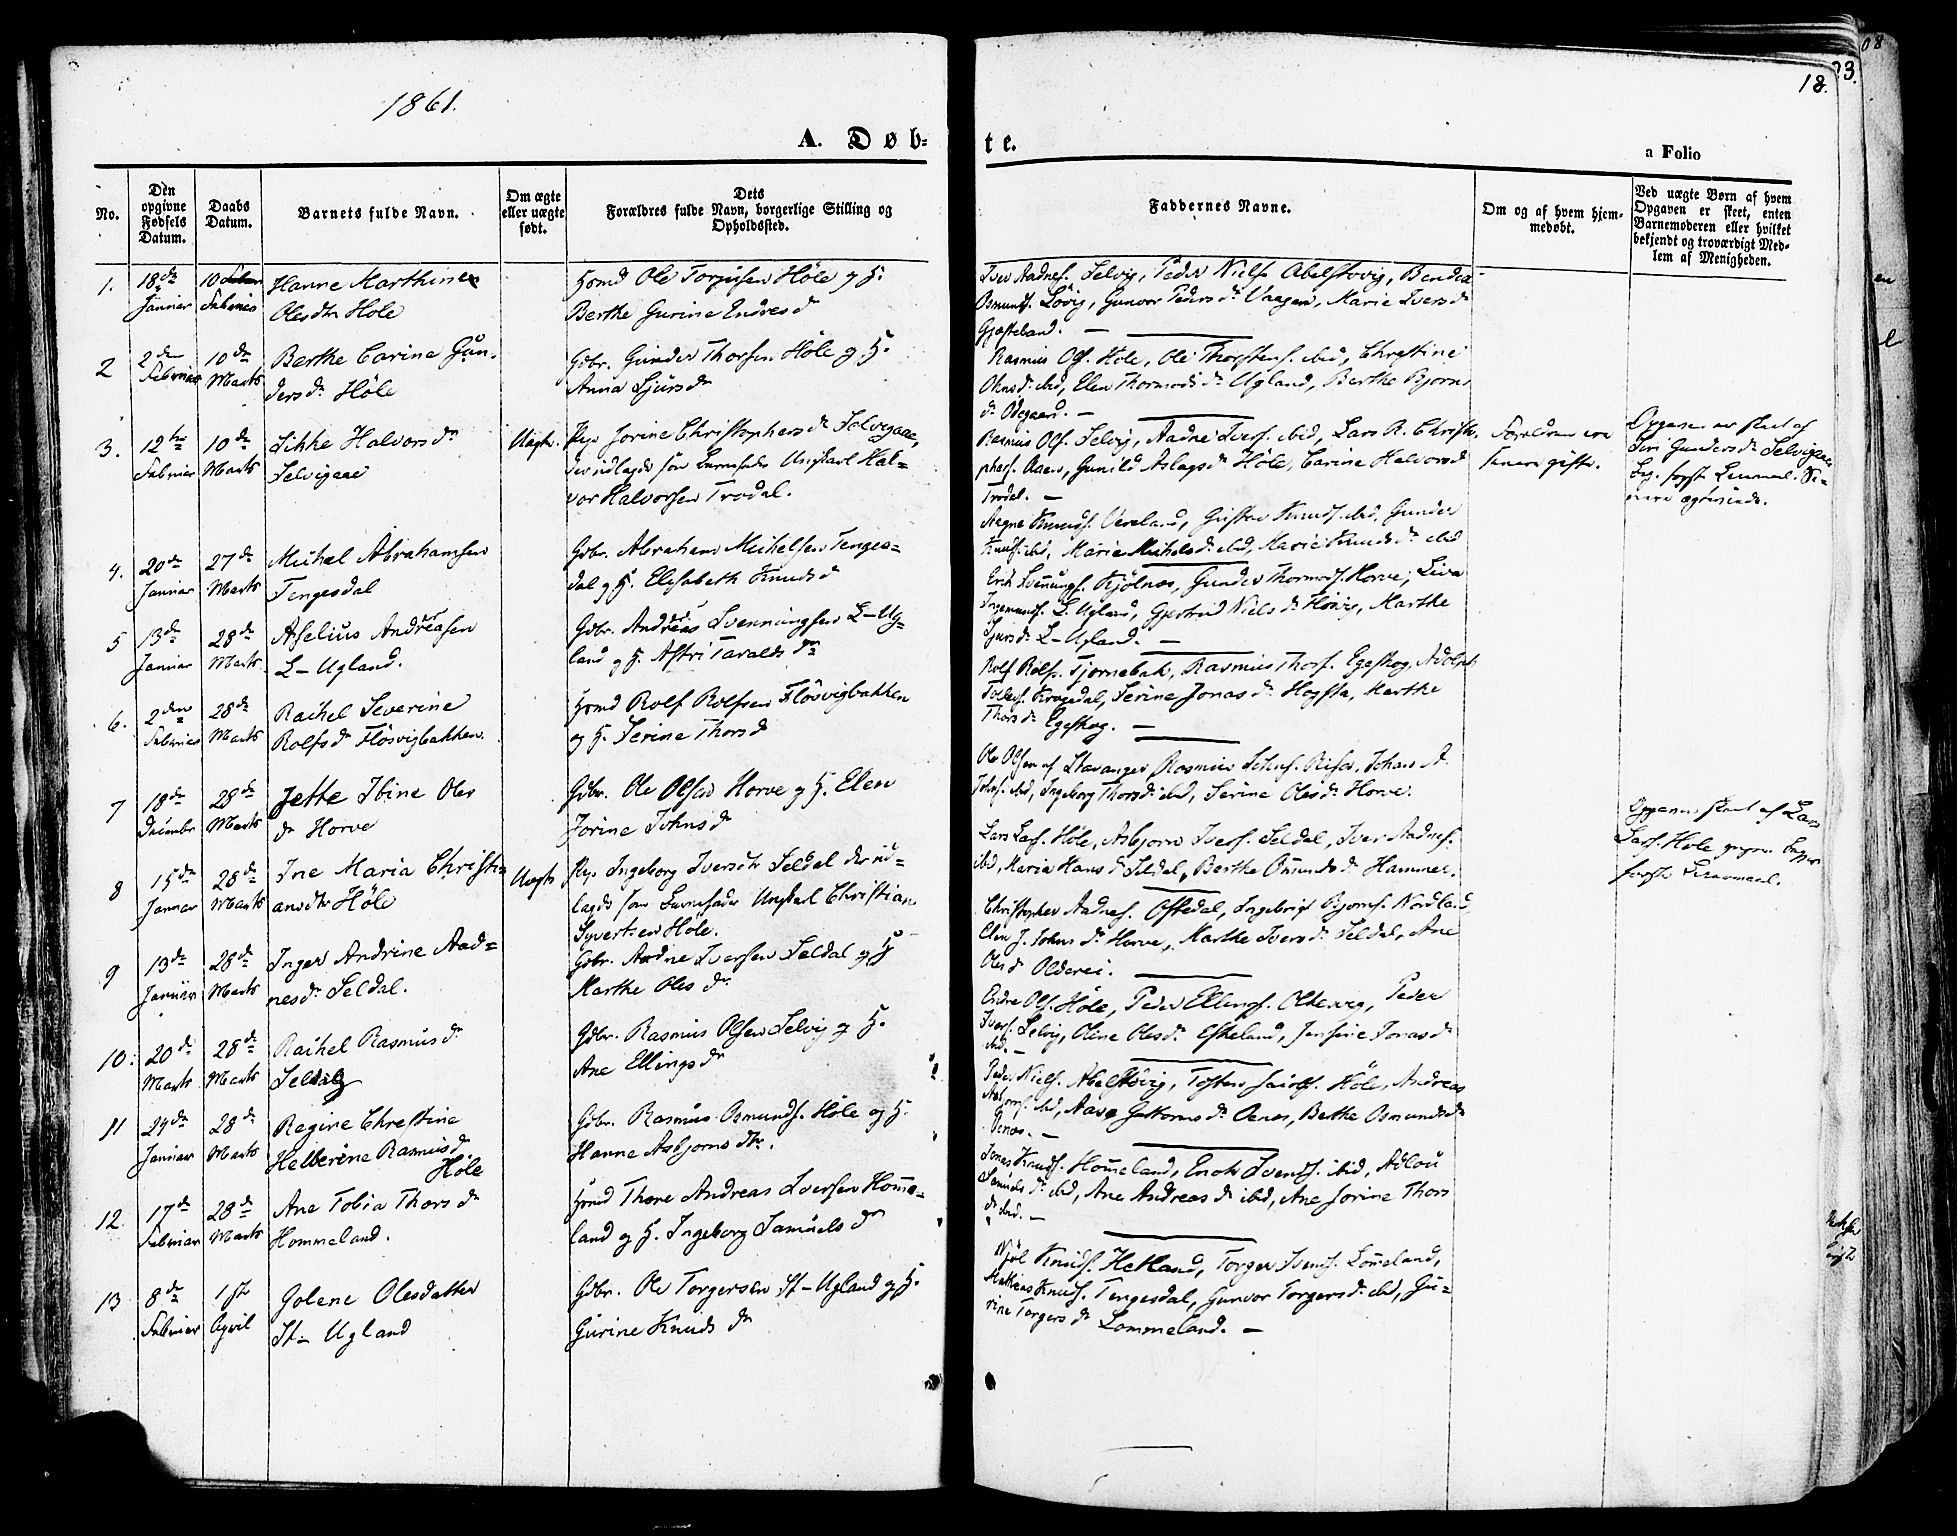 1861.
18.
23.
A. Døb=
te.
a Folio
No.
Den opgivne Fødsels Datum.
Daabs Datum.
Barnets fulde Navn.
Om ægte eller uægte født.
Dets Forældres fulde Navn, borgerlige Stilling og Opholdssted.
Faddernes Navne.
Om og af hvem hjem-medøbt.
Ved uægte Børn af hvem Opgaven er skeet, enten Barnemoderen eller hvilket bekjendt og troværdigt Med-lem af Menigheden.
1. 18de Januar 10 Februar
Hanne Marthine
Olesdtr Höle
Huusmd Ole Torjusen Höle og H.
Berthe Gurine Endresd
Iver Aadnes. Selvig, Peder Niels. Abelstvvig, Bendix
Osmunds. Lövig, Gunvor Pedersdr Vaagen, Marie Iversdr
Gjesteland. —
2 2den Februar 10de Marts
Berthe Carine Gun-
dersdr Höle
Gdbr. Gunder Thorsen Höle og H.
Anna Sjursdr
Rasmus Ols. Höle, Ole Thorstens. ibid, Christine
Olnsdr ibid, Elen Thormodsdr Ugland, Berthe Bjorns
dr Ödegaard. —
3. 12te Februar 10de Marts
Sikke Halvorsdr
Selvigaae
Uægte.
Pige Jorine Christophersdr Selvigaae,
der udlagde som Barnefader Ungkarl Hal=
vor Halvorsen Trodal.
Rasmus Ols. Selvig, Aadne Ivers. ibid, Lars R. Christo-
phers. Aaen, Gunild Aslagsdr Höle, Carine Halvorsd
Trodal. —
Forældrene ere
senere gifte.
Opgaven er skeet af
Siri Gundersdr Selvigaae
Beg. første Leiermaal.
4. 20de Januar 27de Marts
Michel Abrahamsen
Tengesdal
Gdbr. Abraham Michelsen Tenges=
dal og H. Elisabeth Knudsd
Aagne Knuds. Vereland, Gustav Knuds. ibid, Gunder
Knuds. ibid, Marie Michelsdr ibid, Marie Knudsdr ibid
5 13de Januar 28de Marts
Aselius Andreasen
L-Ugland.
Gdbr. Andreas Svenningsen L-Ug=
land og H. Astri Taraldsdr
Erik Svennings. Kjölnes, Gunder Thormods. Horve, Siva
Ingemunds. L. Ugland, Gjertrud Nielsdr Hönig, Marthe
Sjursdr L-Ugland. —
6. 2den Februar 28de Marts
Rachel Severine
Rolfsdr Flösvigbakken
Huusmd Rolf Rolfsen Flösvigbakken
og H. Serine Thorsd
Rolf Rolfs. Tjørnebak, Rasmus Thors. Egeskog, Adolph
Tollefs. Kragedal, Serine Jonasdr Hogsta, Marthe
Thorsdr Egeskog. —
7 18de Decembr 28de Marts
Jette Ibine Oles
dr Horve
Gdbr. Ole Olsen Horve og H. Elen
Jorine Johnsdr
Ole Olsen af Stavanger, Rasmus Johns. Risa, Johan A.
Johns. ibid, Ingeborg Thorsdr ibid, Serine Olesdr Horve.
8 15de Januar 28de Marts
Ine Maria Christi=
ansdtr Höle
Uægte
Pige Ingeborg Iversdtr Seldal der ud=
lagde som Barnefader Ungkarl Christian
Syvertsen Höle.
Lars Lars. Höle, Asbjorn Ivers. Seldal, Iver Aadnes.
ibid, Maria Hansdr Seldal, Berthe Omundsdr Hammer.
Opgaven skeet af Lars
Lars. Höle
første Leiermaal.
9 13de Januar 28de Marts
Inger Andrine Aad=
nesdr Seldal.
Gdbr. Aadne Iversen Seldal og H
Marthe Olesdr
Christopher Aadnes. Oftedal, Ingebrigt Bjorns. Nordland
Elen J. Johnsdr Horve, Marthe Iversdr Seldal, Ane
Olesdr Olderei.
10. 20de Marts 28de Marts
Rachel Rasmusdr
Selvig
Gdbr. Rasmus Olsen Selvig og H.
Ane Ellingsdr
Endre Ols. Höle, Peder Ellings. Oltesvig, Peder
Ivers. Selvig, Oline Olesdr Eskeland, Jensine Jonasdr
ibd. —
11 24de Januar 28de Marts
Regine Chrestine
Helberine Rasmusd.
Höle
Gdbr. Rasmus Osmunds. Höle og H.
Hanne Asbjornsdtr.
Peder Niels. Abelstvvig, Tosten Jacobs. Höle, Andreas
Asbjorns. ibid, Aave Guttormsdr Oenes, Berthe Osmundsdr
Oenes. —
12. 17de Februar 28de Marts
Ane Tobia Thorsdr
Hommeland.
Huusmd Thore Andreas Iversen Homme=
land og H. Ingeborg Samuelsdr
Jonas Knuds. Hommeland, Enok Svends. ibid, Adlou
Samuelsdr ibid, Ane Andreasdr ibid, Ane Jorine Thors
dr ibid. —
13 8de Februar 1ste April
Golene Olesdatter
St- Ugland
Gdbr. Ole Torgersen St-Ugland og H.
Gurine Knudsdr
Njöl Knuds. Hetland, Torger Svends. Lommeland,
Mathias Knuds. Tengesdal, Gunvor Torgersdr ibid, Gu=
rine Torgersdr Lommeland. —